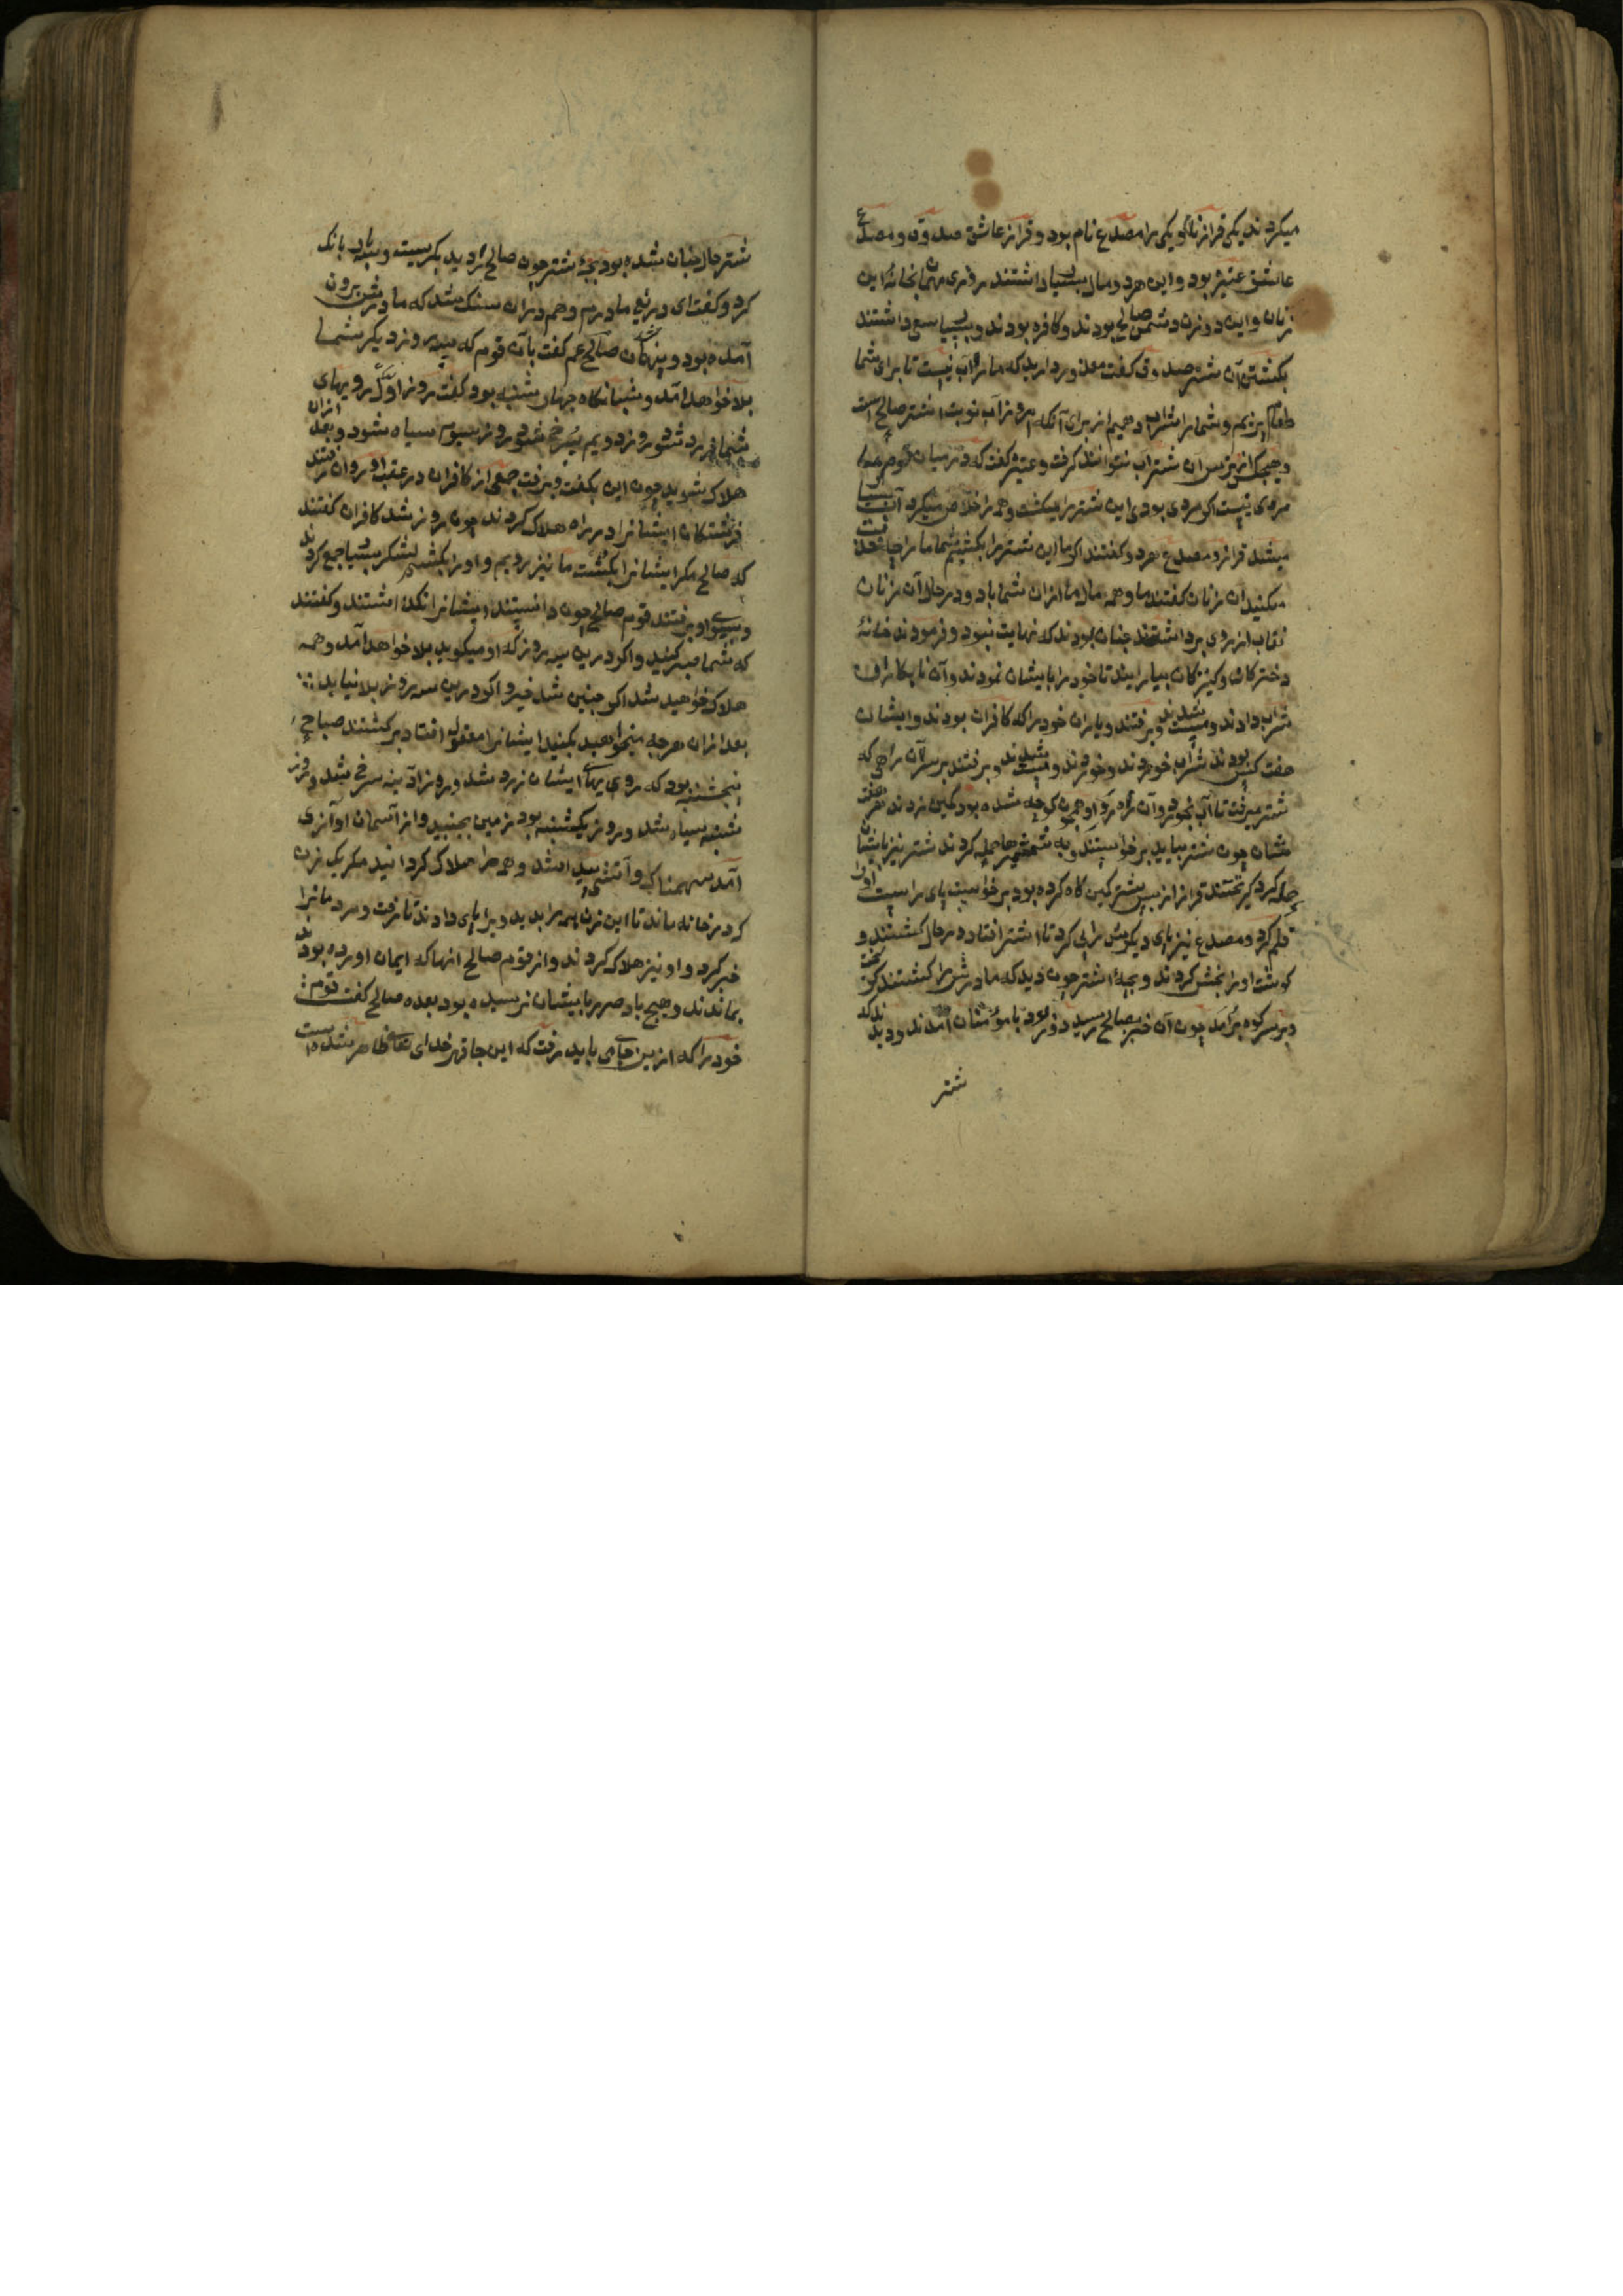 میکردند یکی قراز نام و یکی را مصدع نام بود و قراز عاشق صدوق و مصدع
عاشق عنیزه بود و این هر دو مال بسیار داشتند روزی مهمان بخانهٔ این
زنان و این دو زن دشمن صالح بودند و کافره بودند و بسیار سعی داشتند
بکشتن آن شتر صدوق گفت معذور دارید که ما را آب نیست تا برای شما
طعام پزیم و شما را شراب دهیم از برای آنکه امروز آب نوبت اشتر صالح است
و هیچکس از ترس آن شتر آب نتوانند گرفت و عنیزه گفت که در میان قوم ما
مردی نیست اگر مردی بودی این شتر را میکشت و همه را خلاص میکرد آب بسیار
میشد قراز و مصدع هر دو گفتند اگر ما این شتر را بکشیم شما ما را چه خدمت
میکنید آن زنان گفتند ما و همه مال ما ازان شما باد و در حال آن زنان
نقاب از روی برداشتند چنان بودند که نهایت نبود و فرمودند خانهٔ
دخترکان و کنیزکان بیارایند تا خود را بایشان نمودند و آن نابکاران
شراب دادند و مست شدند و برفتند و یاران خود را که کافران بودند و ایشان
هفت کس بودند شراب خوردند و خوردند و مست شدند و برفتند بر سر آن راهی که
شتر میرفت تا آب بخورد و آن راه رو او همچون کوچه شده بود کمین زدند هر هفت
مشان چون شتر بیامد برخواستند و به شمشیرها حمله کردند شتر نیز بایشان
حمله کرد گریختند قراز از پس شتر کمین گاه کرده بود برخواست پای راست او را
قلم کرد و مصدع نیز پای دیگرش را پی کرد تا اشتر افتاد در حال کشتند و
گوشت او را بخش کردند و بچهٔ اشتر چون دید که مادرش را کشتند گریخت
و بر سر کوه برآمد چون آن خبر بصالح رسید زود با مؤمنان آمدند و دیدند که
شتر
شتر حال چنان شده بود بچهٔ شتر چون صالح را دید بگریست و سه بار بانک
کرد و گفت ای دریغ مادرم و هم در آن سنک شد که مادرش بیرون
آمده بود و پنهان شد صالح عم گفت بآن قوم که سه روز دیگر شما را
بلا خواهد آمد و شبانگاه چهار شنبه بود گفت روز اول رویهای
شما زرد شود و روز دویم سرخ شود و روز سیوم سیاه شود و بعد ازان
هلاک شوید چون این بگفت و برفت جمعی از کافران در عقب او روان شدند
فرشتگان ایشانرا در راه هلاک کردند چون روز شد کافران گفتند
که صالح مگر ایشانرا بکشت ما نیز برویم و او را بکشیم لشکر بسیار جمع کردند
و بسوی او برفتند قوم صالح چون دانستند ایشانرا نگذاشتند و گفتند
که شما صبر کنید و اگر درین سه روز که او میگوید بلا خواهد آمد و همه
هلاک خواهید شد اگر چنین شد فبها و اگر درین سه روز بلا نیاید
بعد ازان هر چه میخواهید بکنید ایشانرا معقول افتاد برگشتند صباح
پنجشنبه بود که روی های ایشان زرد شد و روز آدینه سرخ شد و روز
شنبه سیاه شد و روز یکشنبه بود زمین بجنبید و از آسمان آوازی
آمد سهمناک و آتشی پیدا شد و همه را هلاک گردانید مگر یک زن
که در خانه ماند تا این زن همه را بدید ویرا پای دادند تا رفت و مردمانرا
خبر کرد و او نیز هلاک کردند و از قوم صالح انها که ایمان اورده بودند
بماندند و هیچ باد صرر بایشان نرسیده بود بعده صالح گفت قوم
خود را که ازین جای باید رفت که این جا قهر خدای تعالی ظاهر شده است